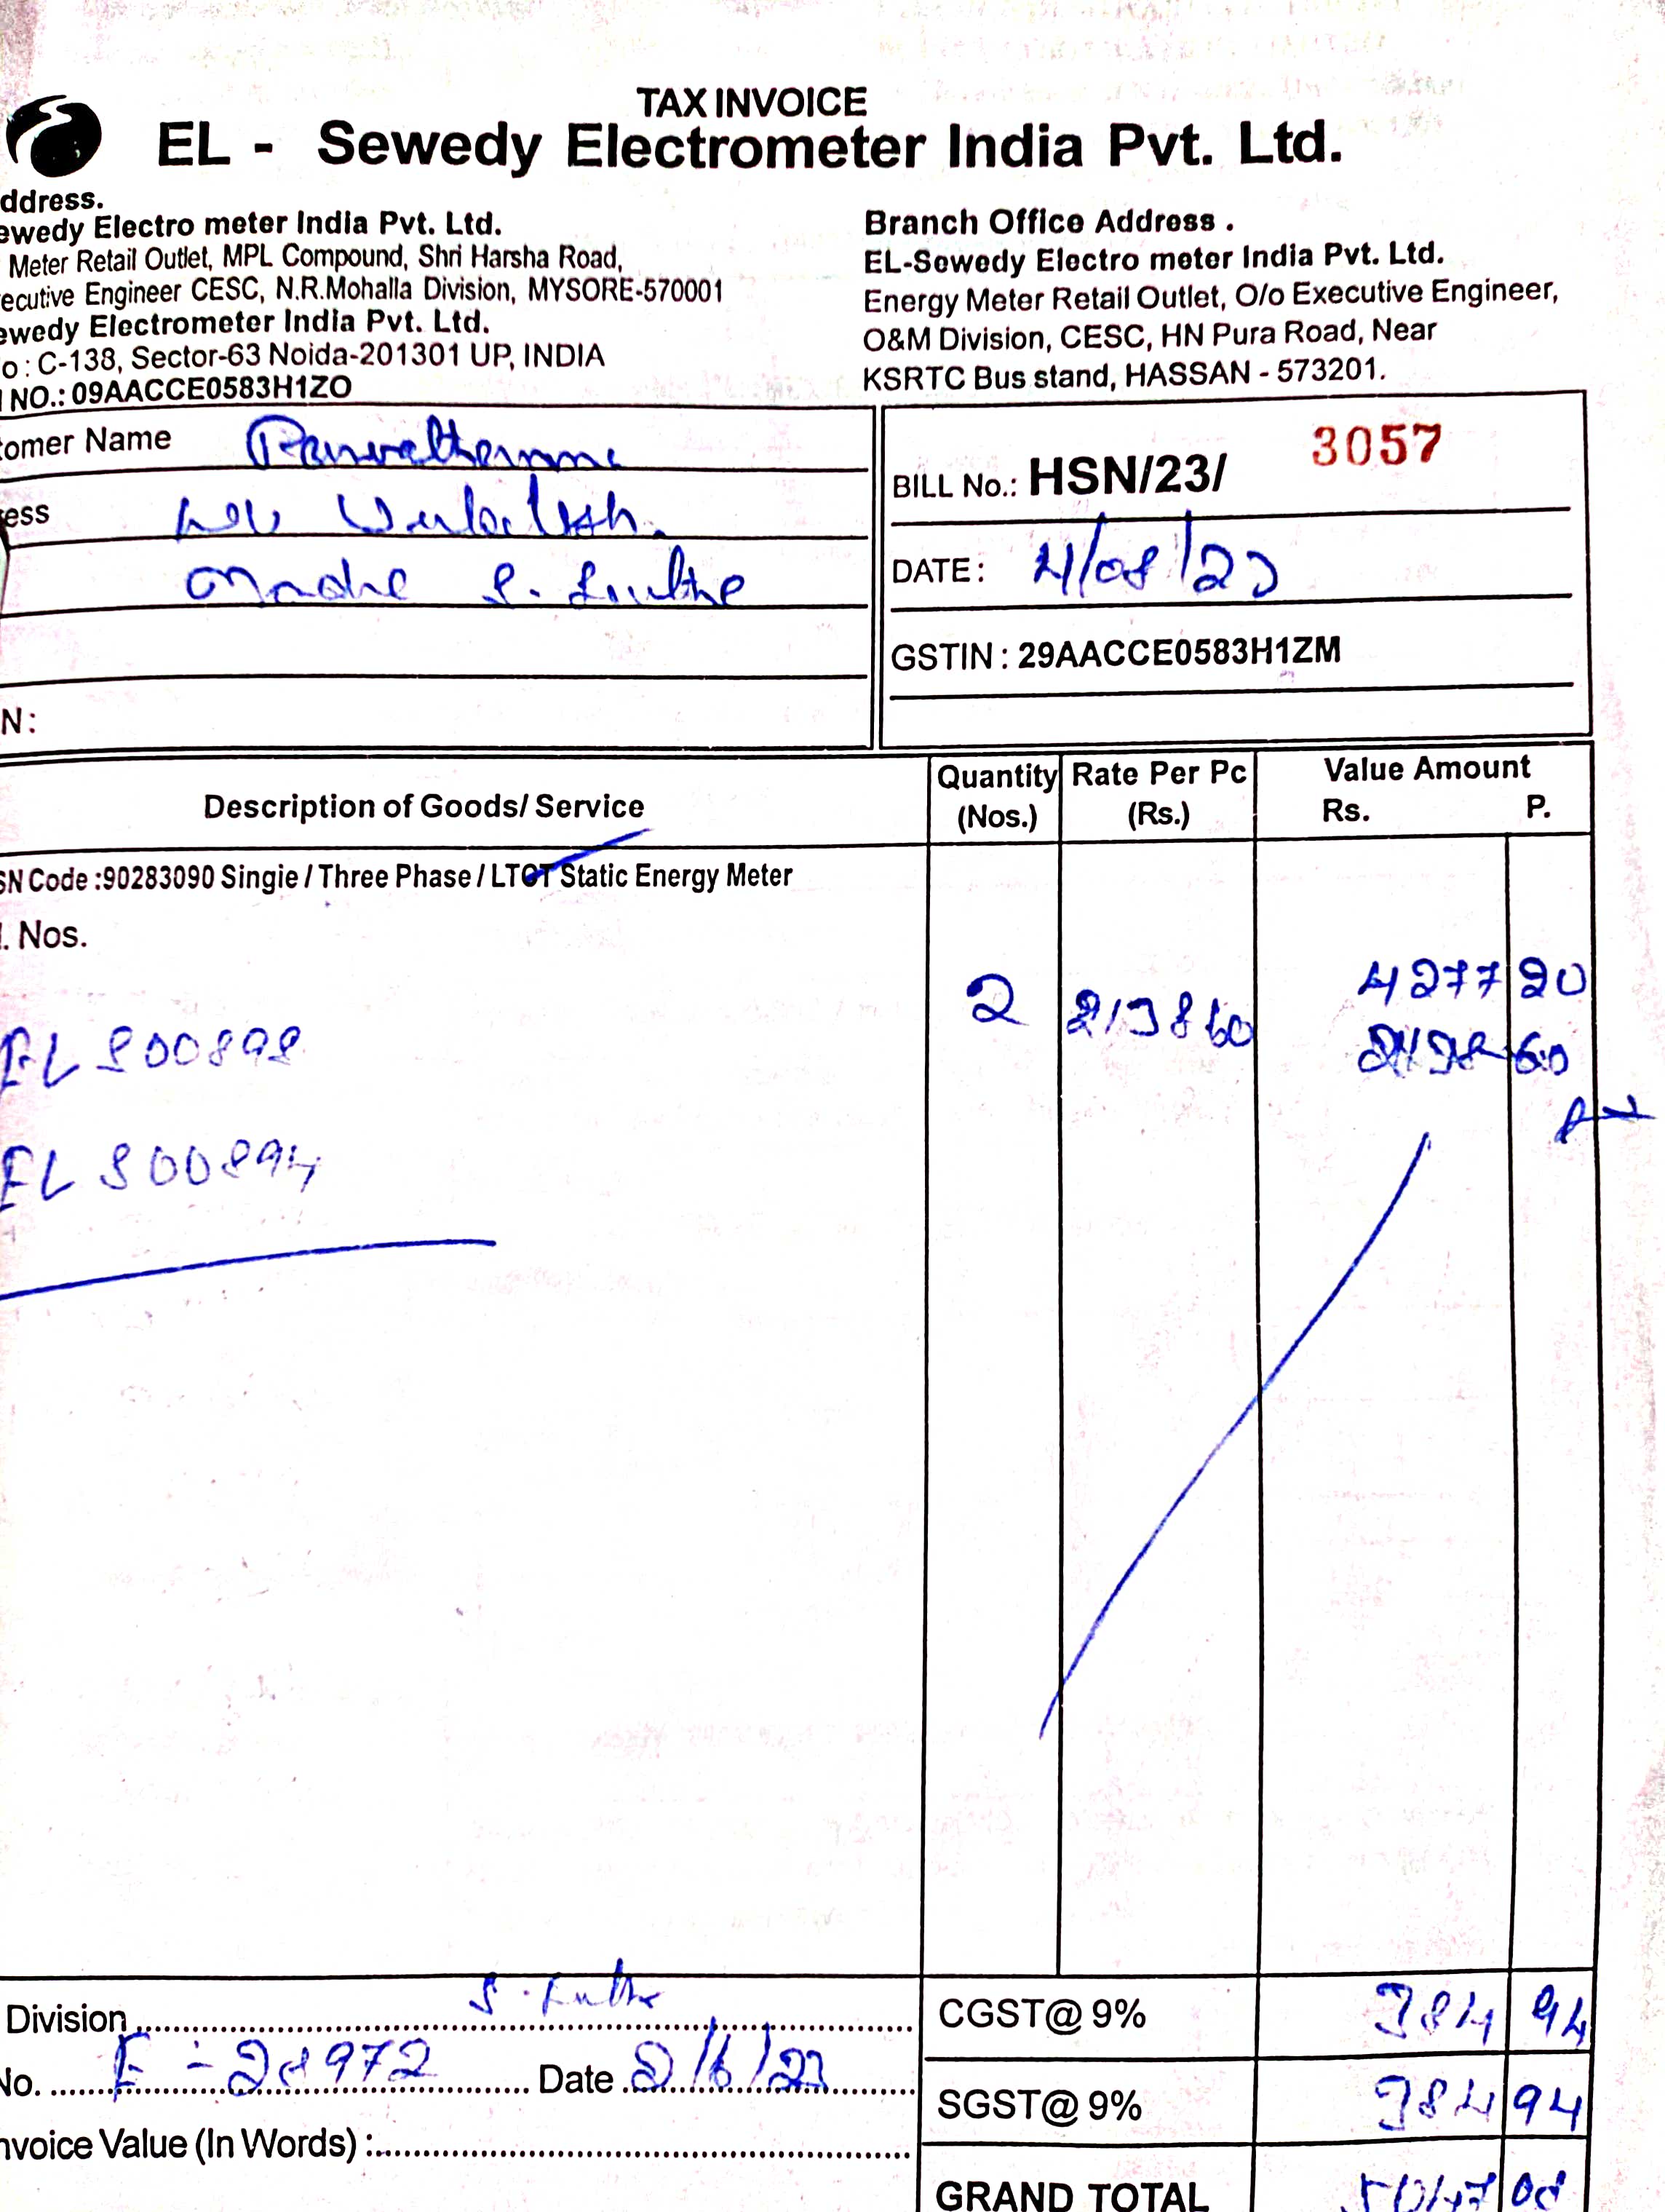 TAX INVOICE
EL - Sewedy Electrometer India Pvt. Ltd.
ddress.
ewedy Electro meter India Pvt. Ltd.
Meter Retail Outlet, MPL Compound, Shri Harsha Road,
ecutive Engineer CESC, N.R.Mohalla Division, MYSORE-570001
ewedy Electrometer India Pvt. Ltd.
o : C-138, Sector-63 Noida-201301 UP, INDIA
NO.: 09AACCE0583H1ZO
Branch Office Address .
EL-Sewedy Electro meter India Pvt. Ltd.
Energy Meter Retail Outlet, O/o Executive Engineer,
O&M Division, CESC, HN Pura Road, Near
KSRTC Bus stand, HASSAN - 573201.
omer Name
ess
N :
BILL No.: HSN/23/ 3057
DATE : 4/08/23
GSTIN : 29AACCE0583H1ZM
Description of Goods/ Service
Quantity (Nos.)
Rate Per Pc (Rs.)
Value Amount
Rs. P.
SN Code :90283090 Singie / Three Phase / LTCT Static Energy Meter
. Nos.
2 2138 60 4277 20
EL 800898
EL 800894
Division
No. Date 2/6/23
nvoice Value (In Words) :
CGST@ 9% 384 94
SGST@ 9% 384 94
GRAND TOTAL